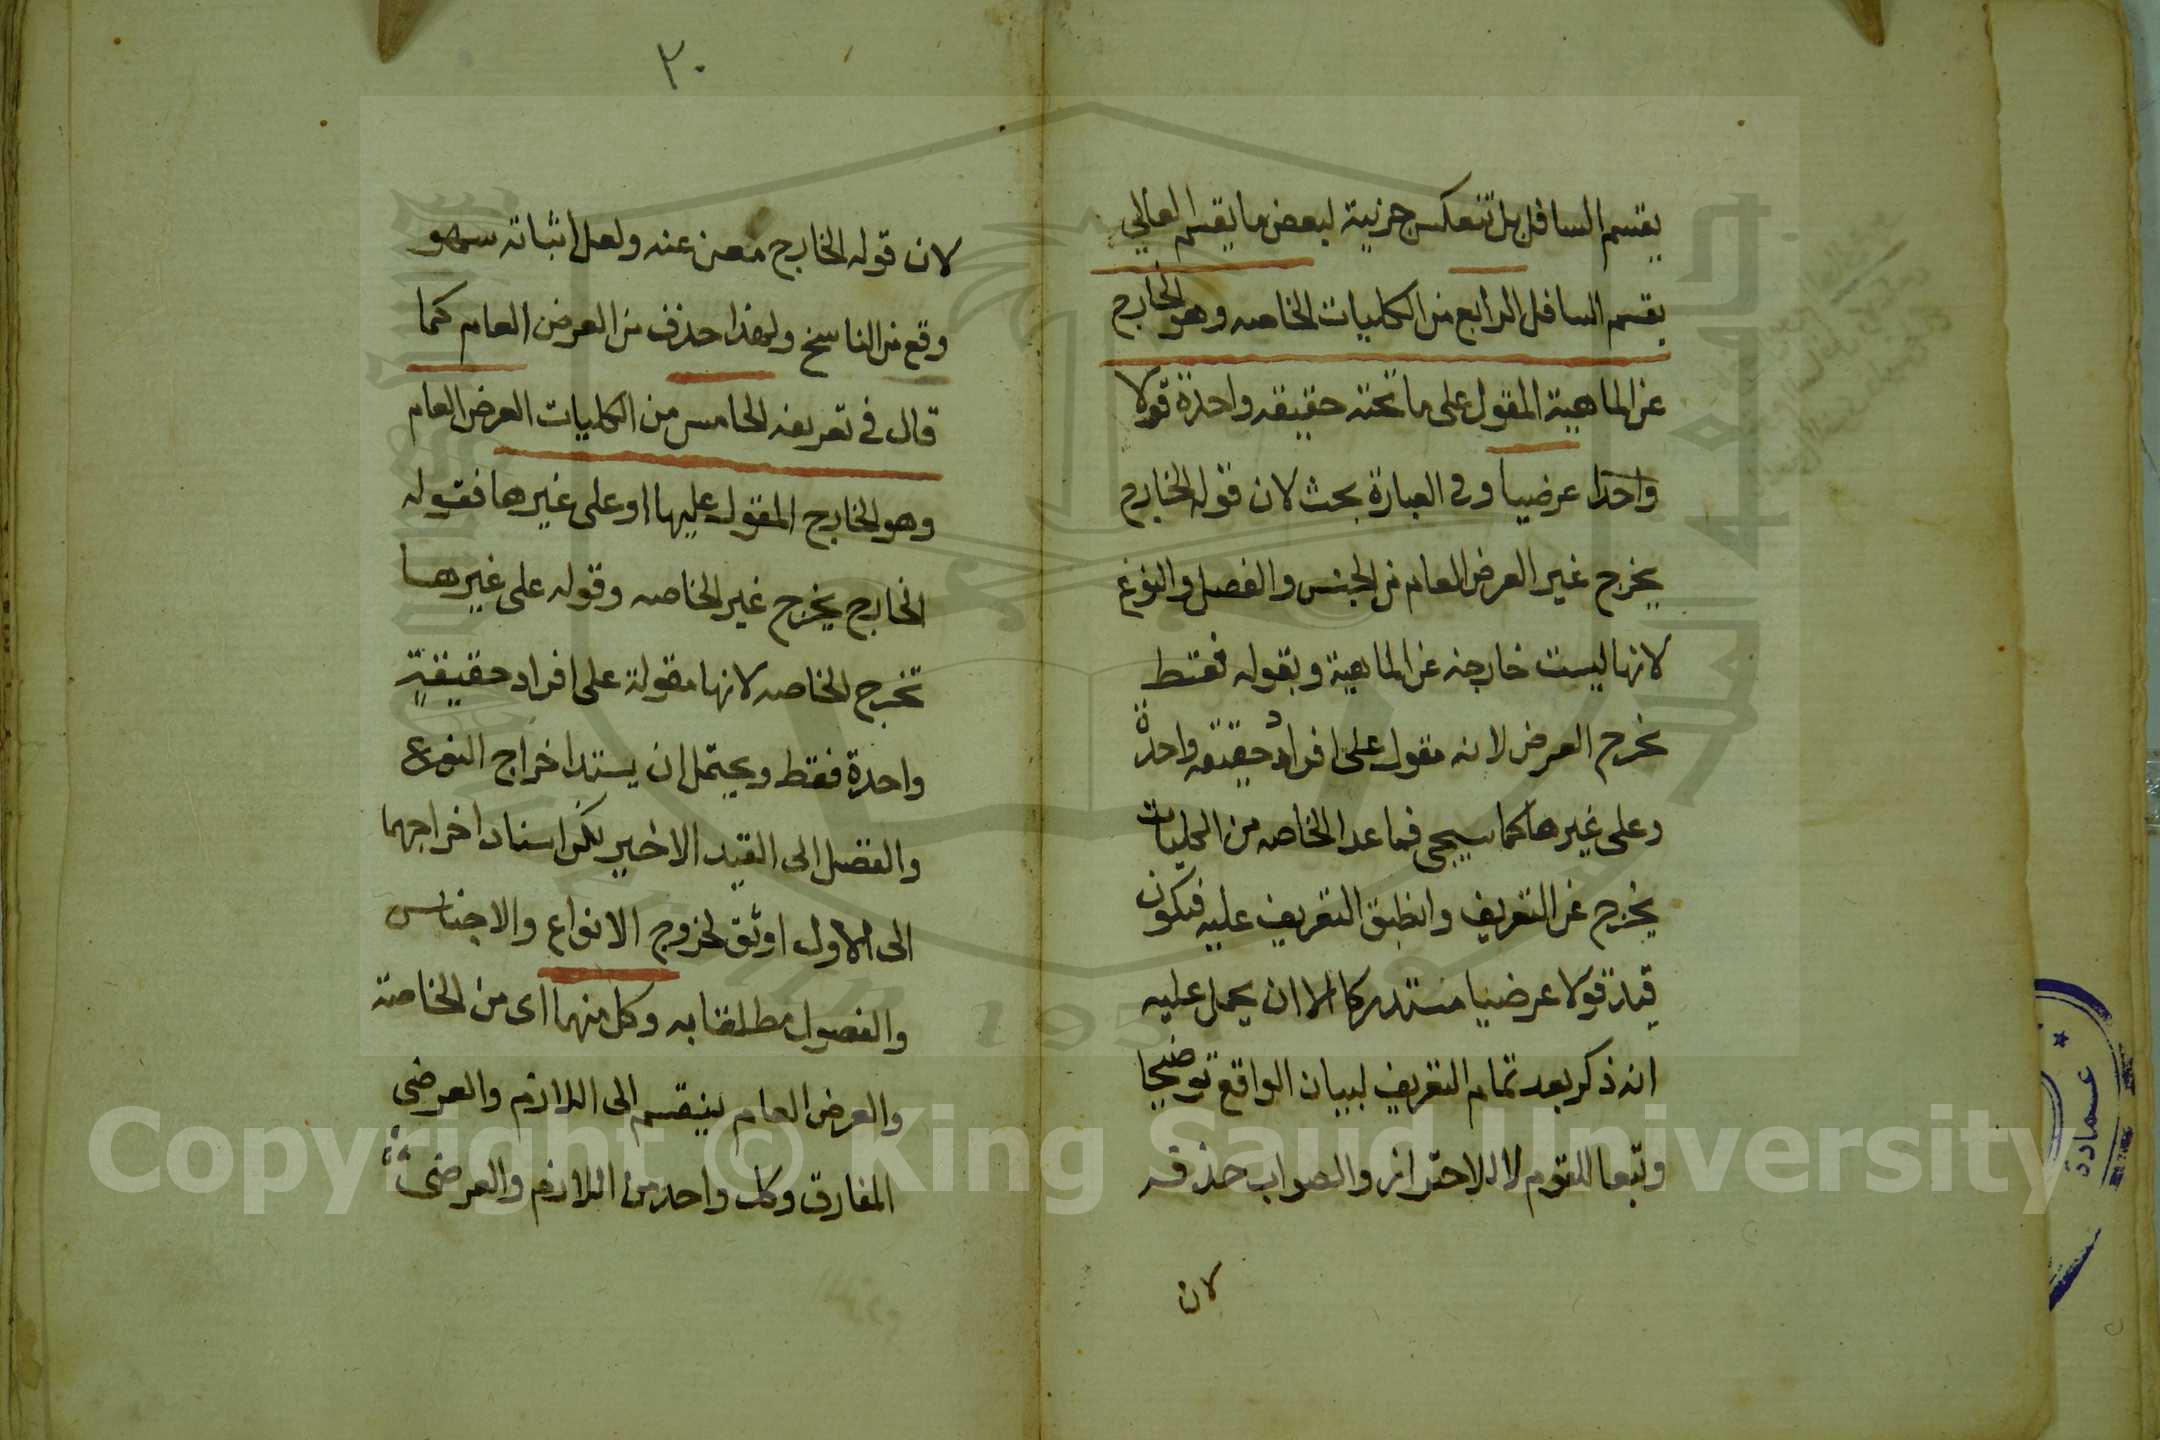 يقسم السافل بل تنعكس جزئية لبعض ما يقسم العالي
يقسم السافل الرابع من الكليات الخاصه وهو الخارج
عن الماهية المقول على ما تحته حقيقه واحدة قولا
واحدا عرضيا وفى العبارة بحث لان قوله الخارج
يخرج غير العرض العام من الجنس والفصل والنوع
لانها ليست خارجه عن الماهية وبقوله فقط
يخرج العرض لانه مقول على افراد حقيقه واحدة
وعلى غيرها كما سيجى فما عدا الخاصه من الكليات
يخرج عن التعريف وانطبق التعريف عليه فيكون
قيد قولا عرضيا مستدركا الا ان يحمل عليه
انه ذكر بعد تمام التعريف لبيان الواقع توضيحا
وتبعا للقوم لا للاحتراز والصواب حذفه
لان
٣٠
لان قوله الخارج مغن عنه ولعل اثباته سهو
وقع من الناسخ ولهذا حذف من العرض العام كما
قال فى تعريفه الخامس من الكليات العرض العام
وهو الخارج المقول عليها او على غيرها فقوله
الخارج يخرج غير الخاصه وقوله على غيرها
تخرج الخاصه لانها مقولة على افراد حقيقة
واحدة فقط ويحتمل ان يستدا خراج النوع
والفصل الى القيد الاخير لكن اسناد اخراجهما
الى الاول اوثق لخروج الانواع والاجناس
والفصول مطلقا به وكل منهما اى من الخاصة
والعرض العام ينقسم الى اللازم والعرضى
المفارق وكل واحد من اللازم والعرضى
عمادة
1957
Copyright © King Saud University